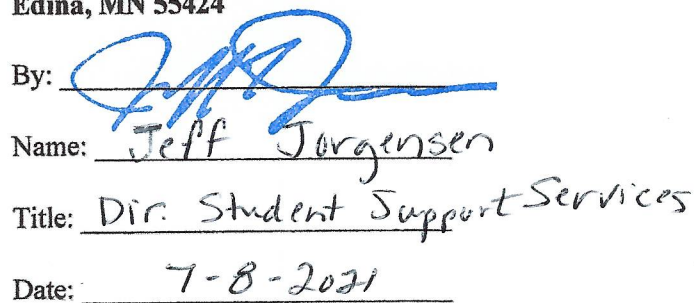 Edina, MN 55424
By:
Name: Jeff Jorgensen
Title: Dir. Student Support Services
Date: 7-8-2021